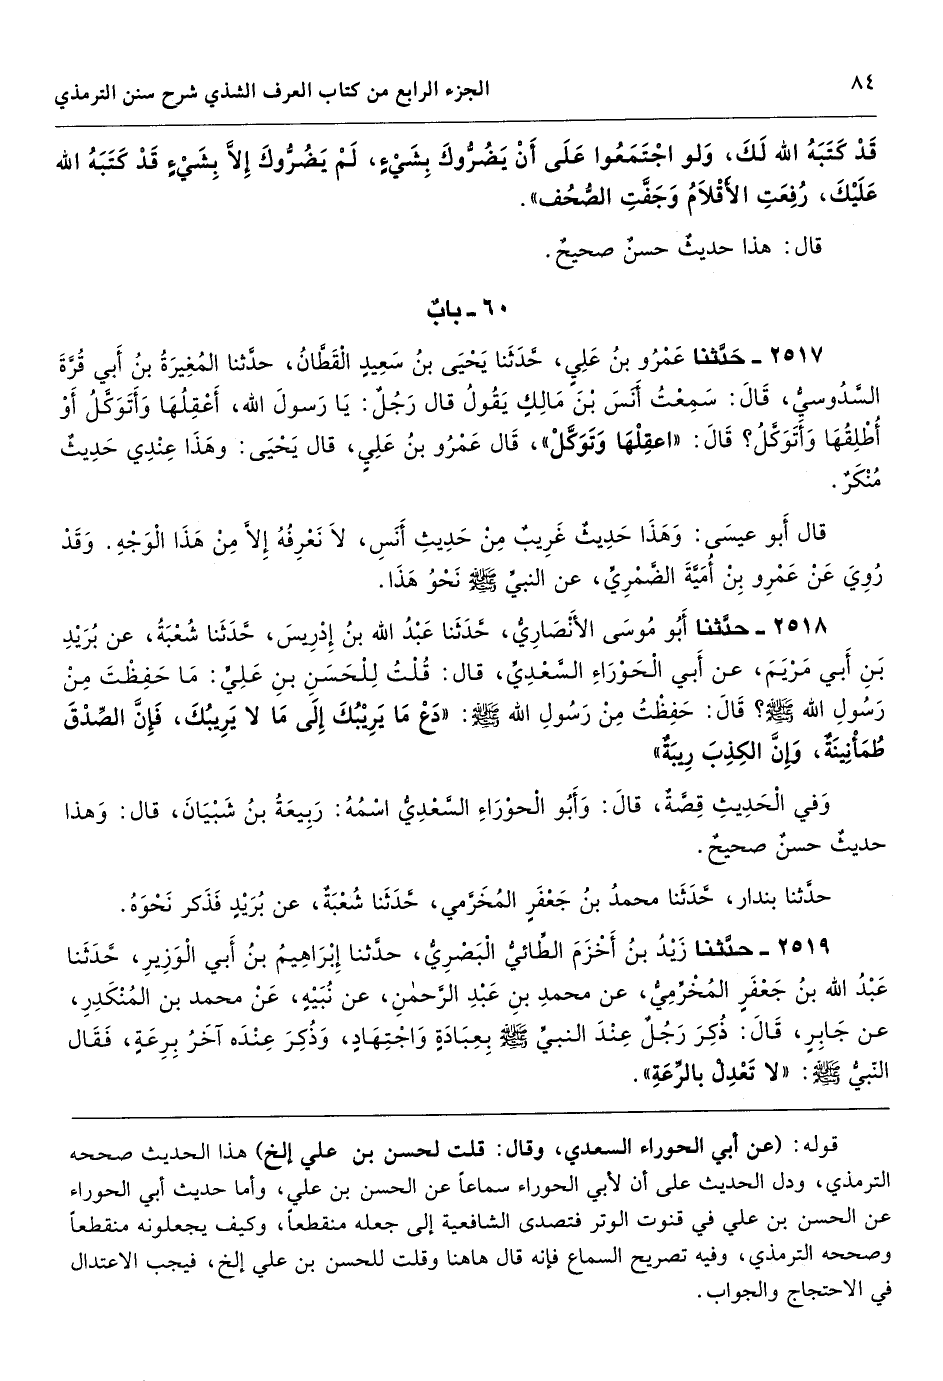 ٨٤
الجزء الرابع من كتاب العرف الشذي شرح سنن الترمذي
قَدْ كَتَبَهُ الله لَكَ، وَلو اجْتَمَعُوا عَلَى أَنْ يَضُرُّوكَ بِشَيْءٍ، لَمْ يَضُرُّوكَ إِلاَّ بِشَيْءٍ قَدْ كَتَبَهُ الله
عَلَيْكَ، رُفِعَتِ الأَقْلاَمُ وَجَفَّتِ الصُّحُف».
قال: هذا حديثٌ حسنٌ صحيحٌ.
٦٠ ـ بابٌ
٢٥١٧ ـ حَدَّثنا عَمْرُو بنُ عَلِي، حَّدَثَنا يَحْيَى بنُ سَعِيدٍ الْقَطَّانُ، حدَّثنا المُغِيرَةُ بنُ أَبي قُرَّةَ
السَّدُوسيُّ، قَالَ: سَمِعْتُ أَنَسَ بْنَ مَالِكٍ يَقُولُ قال رَجُلٌ: يَا رَسولَ الله، أَعْقِلُهَا وَأَتَوَكَّلُ أَوْ
أُطْلِقُهَا وَأَتَوَكَّلُ؟ قَالَ: «اعقِلْهَا وَتَوَكَّلْ»، قَال عَمْرُو بنُ عَلِي، قال يَحْيَى: وهَذَا عِنْدِي حَدِيثٌ
مُنْكَرٌ.
قال أَبو عيسَى: وَهَذَا حَدِيثٌ غَرِيبٌ مِنْ حَدِيثِ أَنَسٍ، لاَ نَعْرِفُهُ إِلاَّ مِنْ هَذَا الْوَجْهِ. وَقَدْ
رُوِيَ عَنْ عَمْرِو بِنْ أُمَيَّةَ الضَّمْرِيِّ، عن النبيِّ ﷺ نَحْوُ هَذَا.
٢٥١٨ ـ حدَّثنا أَبُو مُوسَى الأَنْصَارِيُّ، حَّدَثَنا عَبْدُ الله بنُ إِدْرِيسَ، حَّدَثَنا شُعْبَةُ، عن بُرَيْدِ
بَنِ أَبي مَرْيَمَ، عن أَبي الْحَوْرَاءِ السَّعْدِيِّ، قال: قُلْتُ لِلْحَسَنِ بنِ عَلِيِّ: مَا حَفِظْتَ مِنْ
رَسُولِ الله ﷺ؟ قَالَ: حَفِظْتُ مِنْ رَسُولِ الله ﷺ: «دَعْ مَا يَرِيْبُكَ إِلَى مَا لا يَرِيبُكَ، فَإِنَّ الصِّدْقَ
طُمَأْنِينَةٌ، وَإِنَّ الكِذِبَ رِيبَةٌ»
وَفي الْحَدِيثِ قِصَّةٌ، قالَ: وَأَبُو الْحوْرَاءِ السَّعْدِيُّ اسْمُهُ: رَبِيعَةُ بنُ شَبْيَانَ، قال: وَهذا
حديثٌ حسنٌ صحيحٌ.
حدَّثنا بندار، حَّدَثَنا محمدُ بنُ جَعْفَرٍ المُخَرَّمي، حَّدَثَنا شُعْبَةُ، عن بُرَيْدٍ فَذَكر نَحْوَهُ.
٢٥١٩ ـ حدَّثنا زَيْدُ بنُ أَخْزَمَ الطَّائيُّ الْبَصْرِيُّ، حدَّثنا إِبْرَاهِيمُ بنُ أَبي الْوَزِيرِ، حَّدَثَنا
عَبْدُ الله بنُ جَعْفَرٍ المُخْرَّمِيُّ، عن محمدِ بنِ عَبْدِ الرَّحمٰنِ، عن نُبَيْهٍ، عَنْ محمد بن المُنْكَدِرِ،
عن جَابِرٍ، قَالَ: ذُكِرَ رَجُلٌ عِنْدَ النبيِّ ﷺ بِعِبَادَةٍ وَاجْتِهَادٍ، وَذُكِرَ عِنْدَه آخَرُ بِرِعَةٍ، فَقَال
النّبيُّ ﷺ: «لا تَعْدِلْ بالرِّعَةِ».
قوله: (عن أبي الحوراء السعدي، وقال: قلت لحسن بن علي إلخ) هذا الحديث صححه
الترمذي، ودل الحديث على أن لأبي الحوراء سماعاً عن الحسن بن علي، وأما حديث أبي الحوراء
عن الحسن بن علي في قنوت الوتر فتصدى الشافعية إلى جعله منقطعاً، وكيف يجعلونه منقطعاً
وصححه الترمذي، وفيه تصريح السماع فإنه قال هاهنا وقلت للحسن بن علي إلخ، فيجب الاعتدال
في الاحتجاج والجواب.